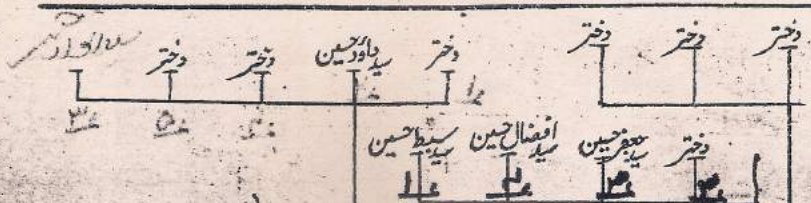 دختر دختر دختر دختر سید داؤد حسین دختر دختر
۱ء ۵ء ۳ء
دختر سید جعفر حسین سید افضال حسین سید سبط حسین
۳ء ۲ء ۱ء